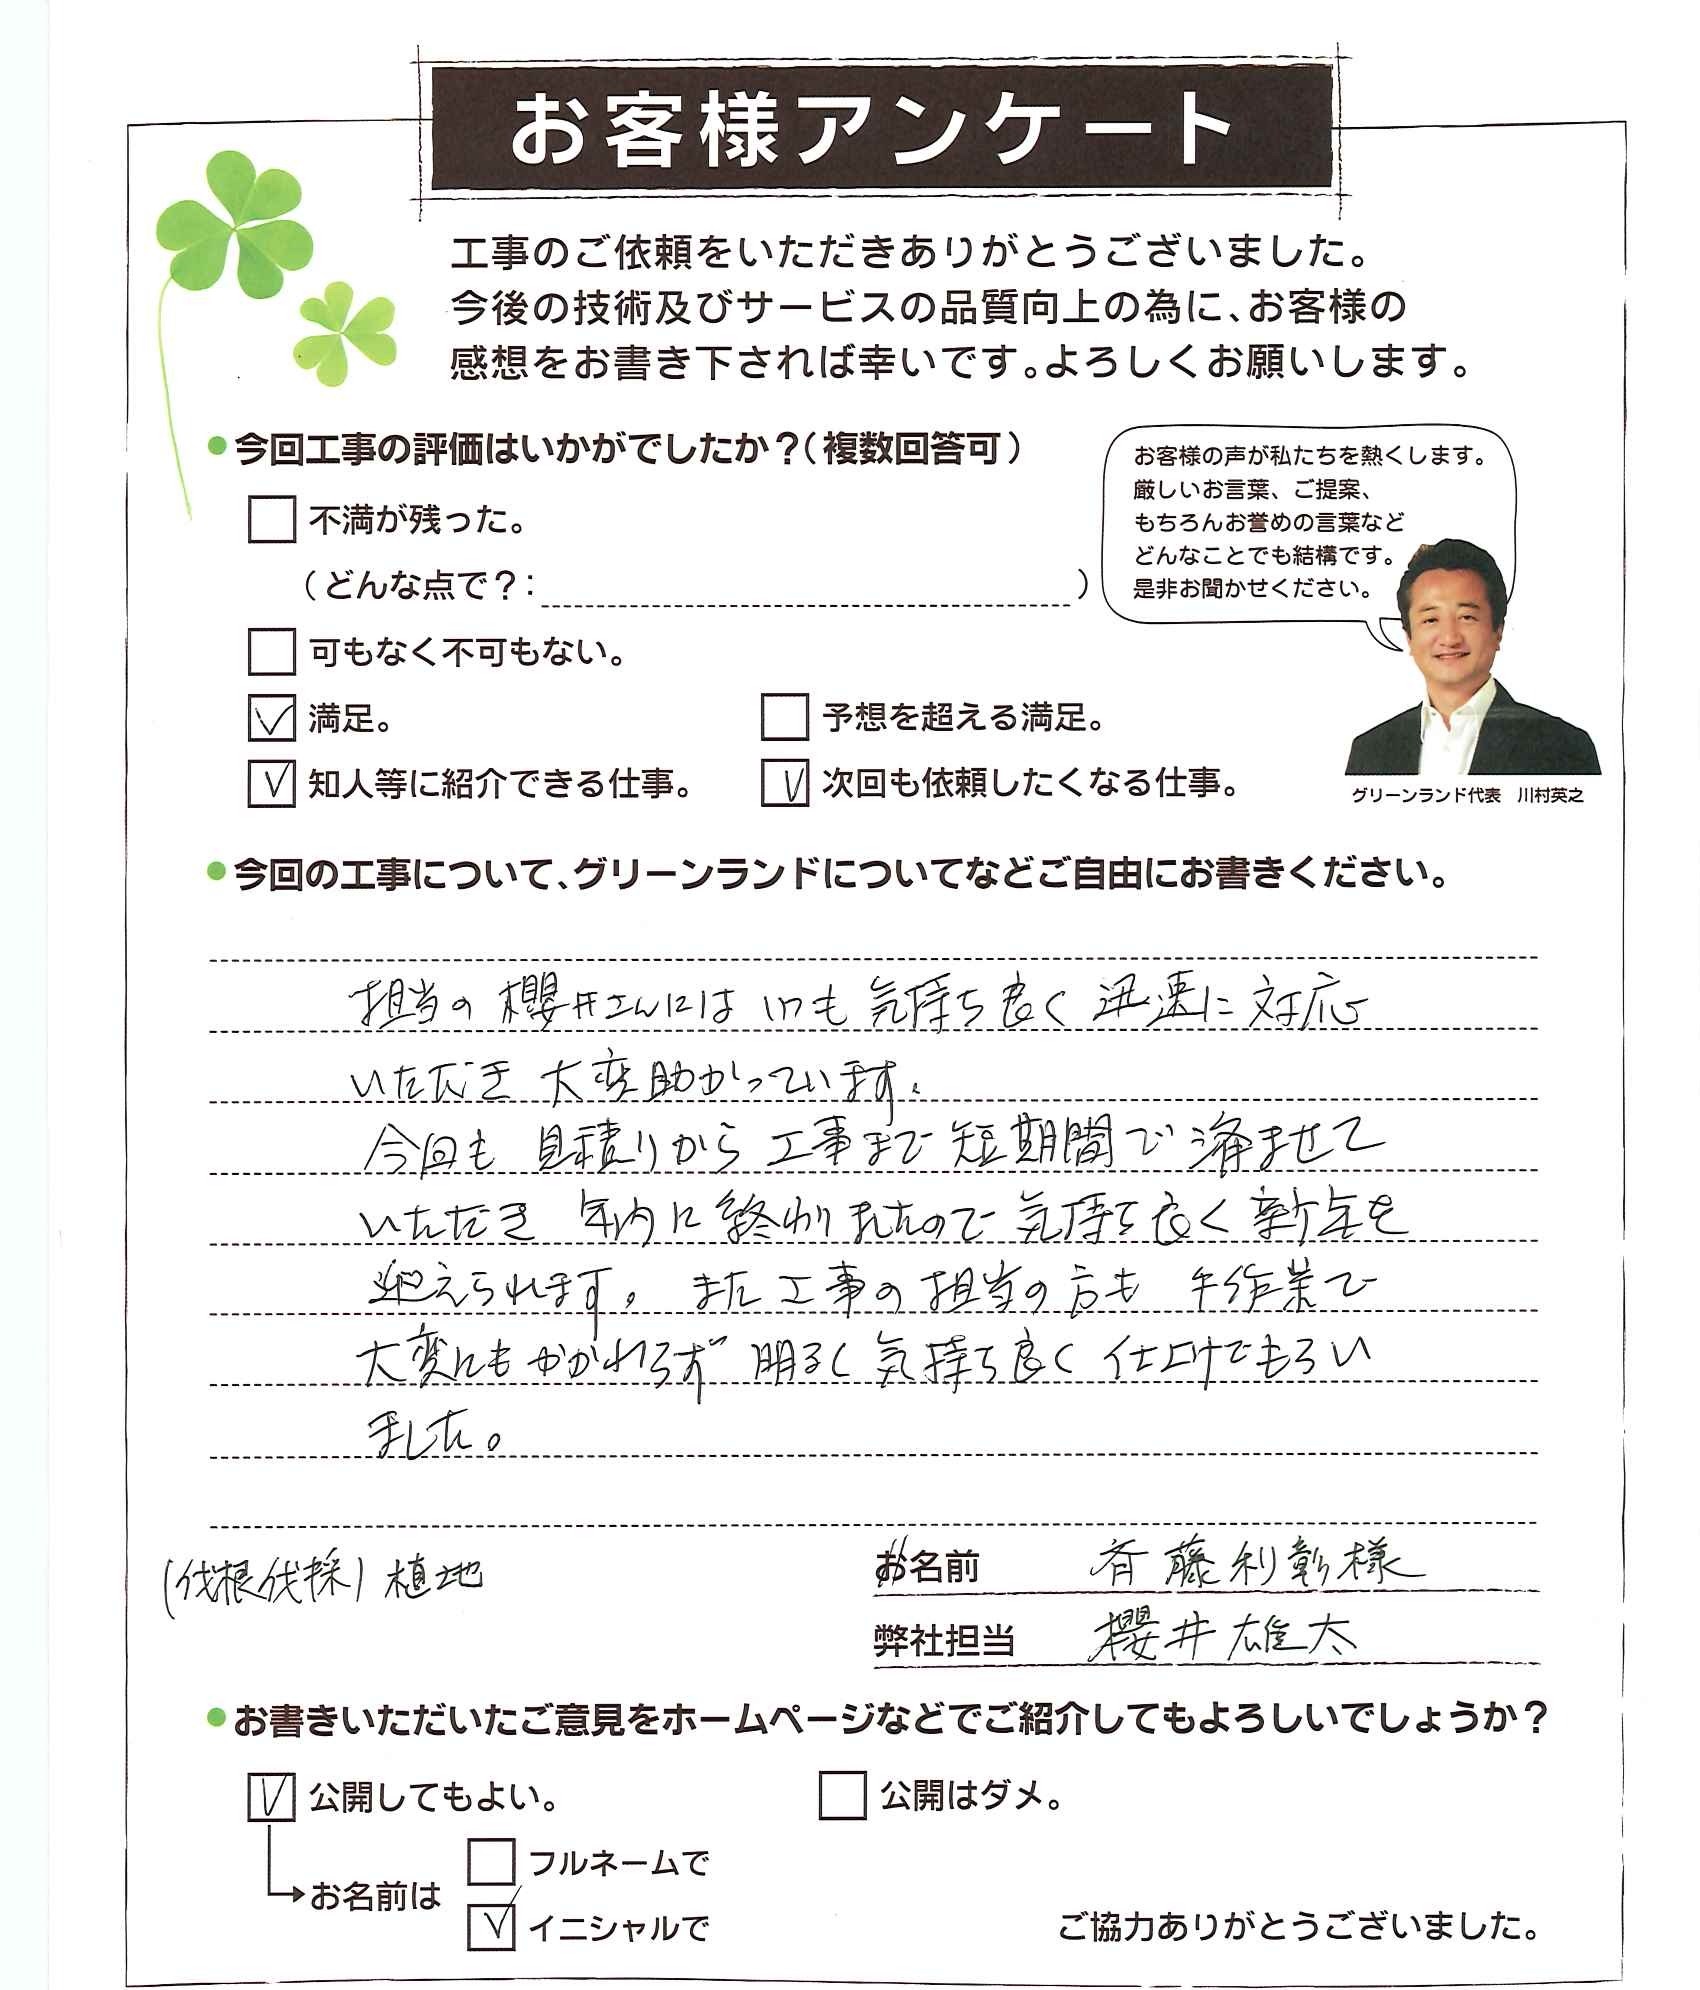 お客様アンケート
工事のご依頼をいただきありがとうございました。
今後の技術及びサービスの品質向上の為に、お客様の
感想をお書き下されば幸いです。よろしくお願いします。
●今回工事の評価はいかがでしたか?(複数回答可)
不満が残った。
(どんな点で?: )
可もなく不可もない。
満足。
予想を超える満足。
知人等に紹介できる仕事。
次回も依頼したくなる仕事。
お客様の声が私たちを熱くします。
厳しいお言葉、ご提案、
もちろんお誉めの言葉など
どんなことでも結構です。
是非お聞かせください。
グリーンランド代表 川村英之
●今回の工事について、グリーンランドについてなどご自由にお書きください。
担当の櫻井さんには いつも 気持ち良く 迅速に 対応
いただき 大変助かっています。
今回も 見積りから 工事まで 短期間で 済ませて
いただき 年内に終わりましたので 気持ち良く 新年を
迎えられます。また工事の担当の方も 手作業で
大変にもかかわらず 明るく 気持ち良く 仕上げてもらい
ました。
(伐根伐採)植地
お名前 斉藤利彰様
弊社担当 櫻井雄太
●お書きいただいたご意見をホームページなどでご紹介してもよろしいでしょうか?
公開してもよい。
公開はダメ。
お名前は
フルネームで
イニシャルで
ご協力ありがとうございました。